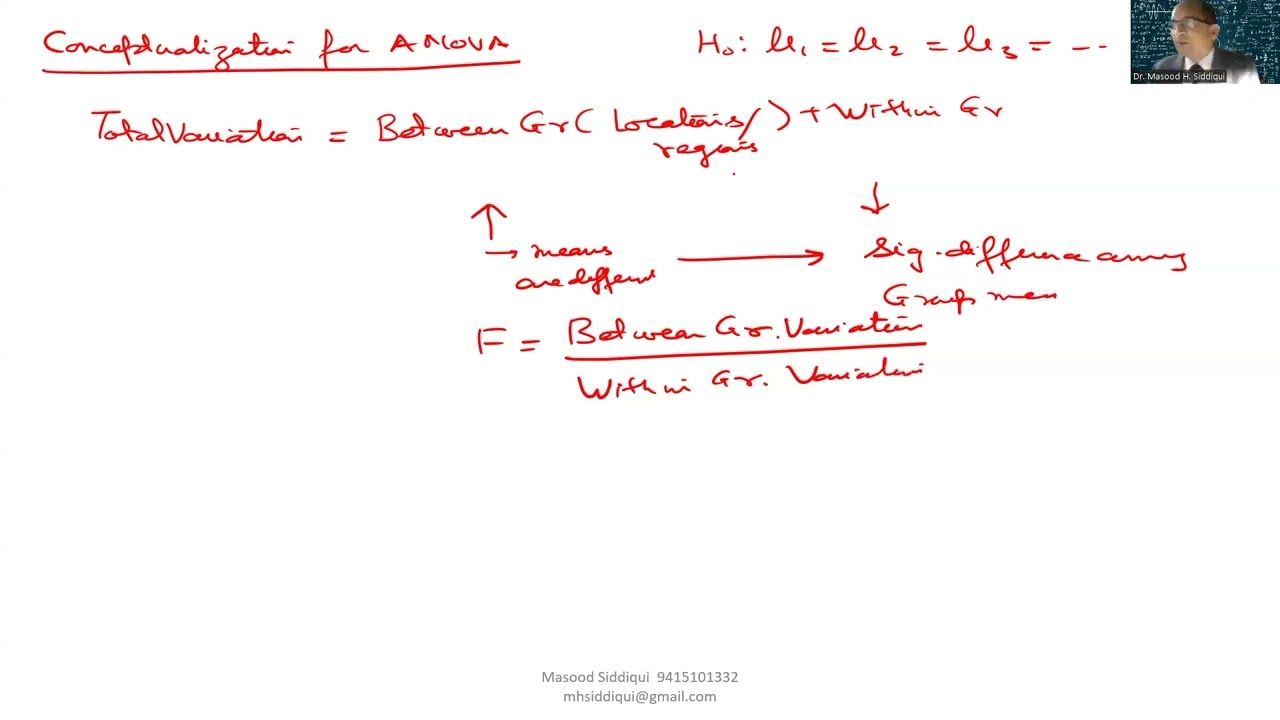 Conceptualization for ANOVA
H₀: μ₁ = μ₂ = μ₃ = - - -
Dr. Masood H. Siddiqui
Total Variation = Between Gr ( Locations/ ) + Within Gr
regions
↑ ↓
→ means ⟶ Sig. difference among
are different
Group mean
F = Between Gr. Variation
Within Gr. Variation
Masood Siddiqui 9415101332
mhsiddiqui@gmail.com